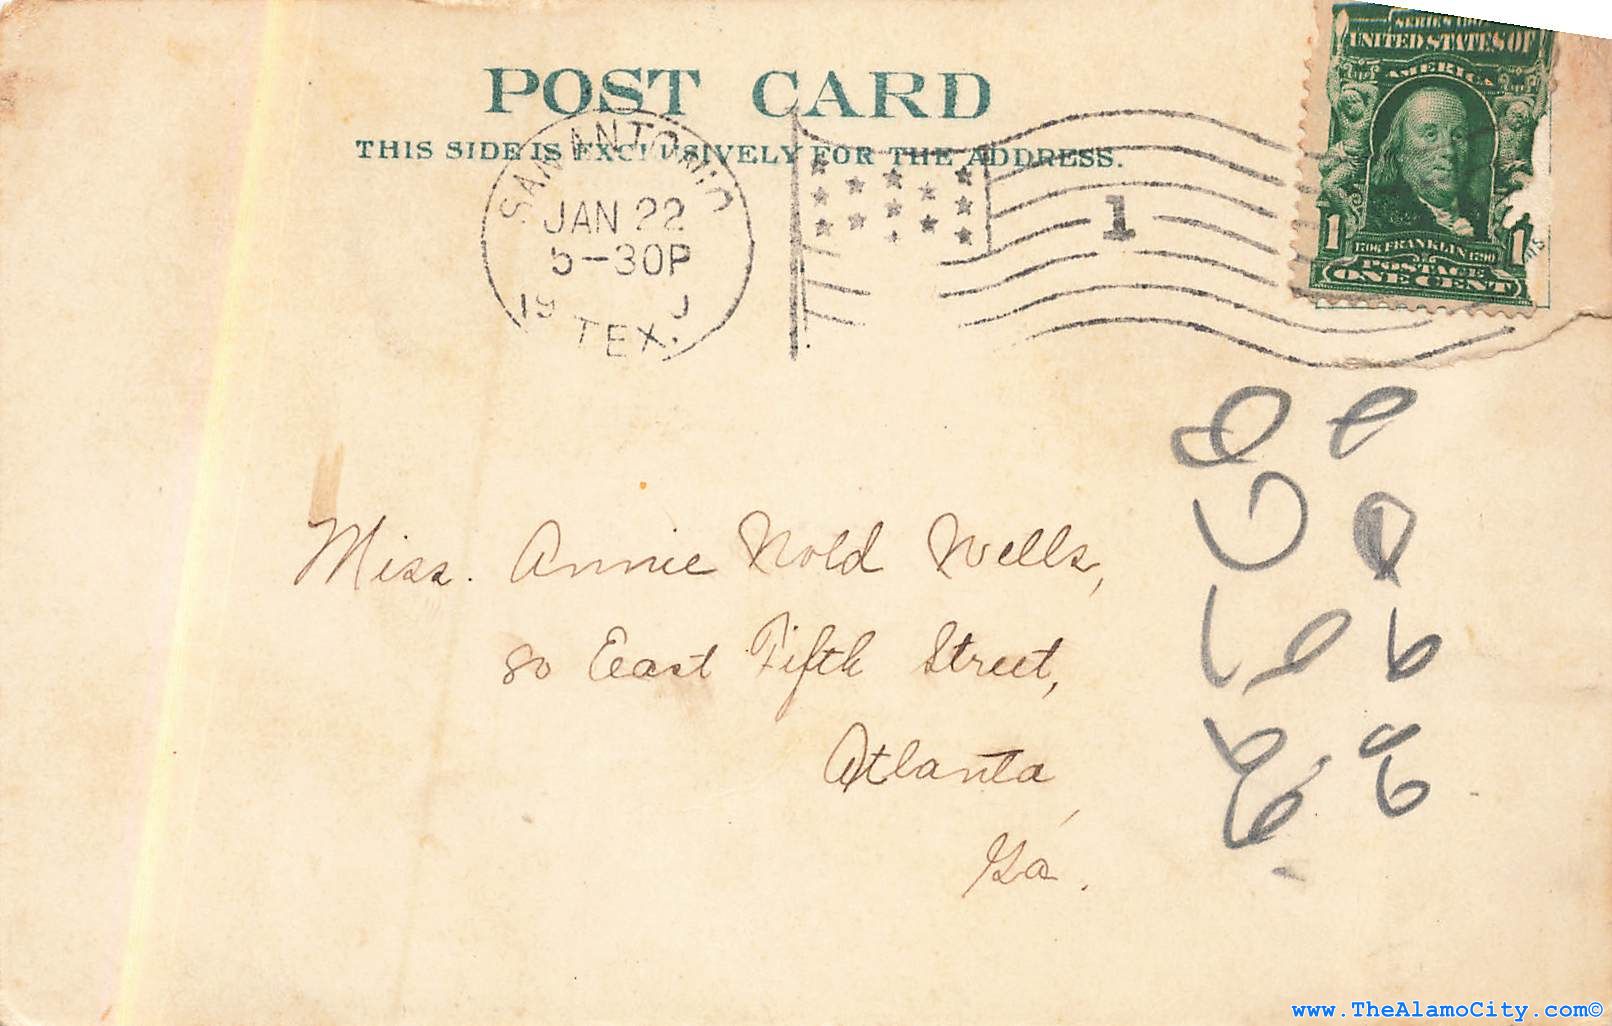 POST CARD
THIS SIDE IS EXCLUSIVELY FOR THE ADDRESS.
SAN ANTONIO
JAN 22
5-30P
19
TEX.
1
SERIES 1902
UNITED STATES OF
AMERICA
1 1706 FRANKLIN 1790 1
POSTAGE
ONE CENT
Miss. Annie Nold Wells,
80 East Fifth Street,
Atlanta,
Ga.
www.TheAlamoCity.com©